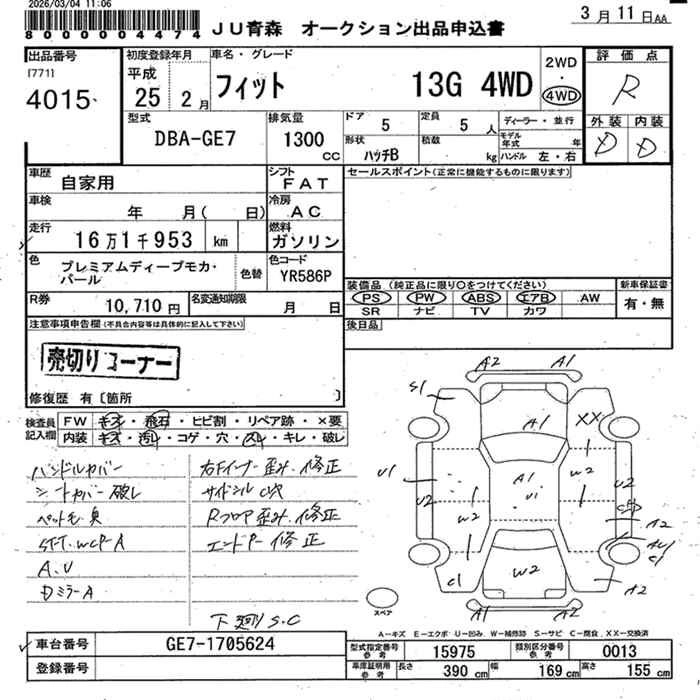 2026/03/04 11:06
8000004474
JU青森 オークション出品申込書
3月11日AA
出品番号
[771]
4015
初度登録年月
平成
25 2月
車名・グレード
フィット 13G 4WD
2WD
・
4WD
評価点
R
外装 内装
D D
型式
DBA-GE7
排気量
1300
cc
ドア 5
定員 5 人
ディーラー・並行
形状
ハッチB
積数
kg
モデル年式 年
ハンドル 左・右
車歴
自家用
シフト
FAT
セールスポイント(正常に機能するものに限ります)
車検
年 月( 日)
冷房
AC
走行
16万1千953 km
燃料
ガソリン
色
プレミアムディープモカ・
パール
色替
色コード
YR586P
装備品(純正品に限り○をつけてください)
PS PW ABS エアB AW
SR ナビ TV カワ
新車保証書
有・無
R券
10,710円
名変通知期限
月 日
後日品
注意事項申告欄(不具合内容等は具体的に記入して下さい)
売切りコーナー
修復歴 有〔箇所 〕
検査員
記入欄
FW キズ・飛石・ヒビ割・リペア跡・×要
内装 キズ・汚れ・コゲ・穴・スレ・キレ・破レ
ハンドルカバー
シートカバー破レ
ペット毛 臭
A.V
DミラーA
右Fインナー歪み.修正
Rフロア歪み.修正
エンドP 修正
下廻りS.C
A2 A1
S1
A1
XX
U1
U2
W2
A1
U1
W2
U2
A2
C1
W2
C1
A2
A1 A2
スペア
A-キズ E-エクボ U-凹み W-補修跡 S-サビ C-腐食 XX-交換済
車台番号
GE7-1705624
登録番号
型式指定番号
参考
15975
類別区分番号
参考
0013
車庫証明用
参考
長さ
390 cm
幅
169 cm
高さ
155 cm